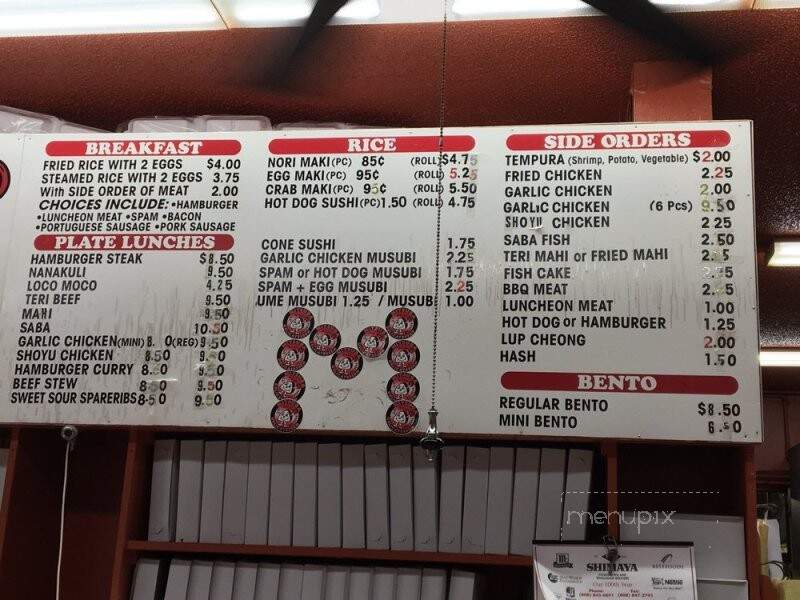 BREAKFAST
FRIED RICE WITH 2 EGGS $4.00
STEAMED RICE WITH 2 EGGS 3.75
With SIDE ORDER OF MEAT 2.00
CHOICES INCLUDE: •HAMBURGER
•LUNCHEON MEAT •SPAM •BACON
•PORTUGUESE SAUSAGE •PORK SAUSAGE
PLATE LUNCHES
HAMBURGER STEAK $8.50
NANAKULI 9.50
LOCO MOCO 4.25
TERI BEEF 9.50
MAHI 9.50
SABA 10.50
GARLIC CHICKEN (MINI) 8. 0 (REG) 9 50
SHOYU CHICKEN 8.50 9. 0
HAMBURGER CURRY 8. 0 9.50
BEEF STEW 8 0 9.50
SWEET SOUR SPARERIBS 8-50 9.50
RICE
NORI MAKI (PC) 85¢ (ROLL) $4.75
EGG MAKI (PC) 95¢ (ROLL) 5.25
CRAB MAKI (PC) 95¢ (ROLL) 5.50
HOT DOG SUSHI (PC) 1.50 (ROLL) 4.75
CONE SUSHI 1.75
GARLIC CHICKEN MUSUBI 2.25
SPAM or HOT DOG MUSUBI 1.75
SPAM + EGG MUSUBI 2.25
UME MUSUBI 1.25 / MUSUBI 1.00
SIDE ORDERS
TEMPURA (Shrimp, Potato, Vegetable) $2.00
FRIED CHICKEN 2.25
GARLIC CHICKEN 2.00
GARLIC CHICKEN (6 Pcs) 9.50
SHOYU CHICKEN 2 25
SABA FISH 2.50
TERI MAHI or FRIED MAHI
FISH CAKE
BBQ MEAT
LUNCHEON MEAT 1.00
HOT DOG or HAMBURGER 1.25
LUP CHEONG 2.00
HASH 1.50
BENTO
REGULAR BENTO $8.50
MINI BENTO 6.50
menupix
SHIMAYA